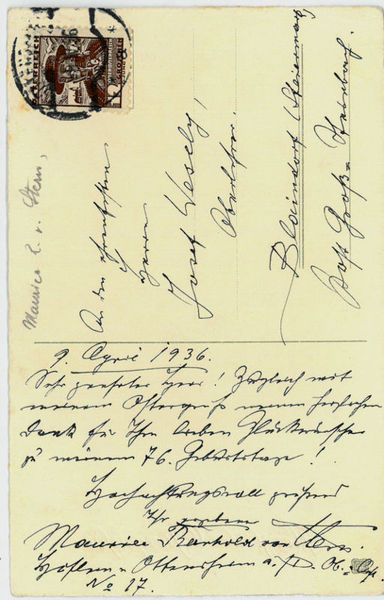 Maurice R. v. Stern,
An den
Herrn
Josef Vesely,
Oberlehrer
Blaindorf (Steiermark)
Post Groß-Steinbach.
9. April 1936.
Sehr geehrter Herr! Zugleich mit
meinem Ostergruß meinen herzlichen
Dank für Ihre lieben Glückwünsche
zu meinem 76. Geburtstage!
Hochachtungsvoll grüßend
Ihr ergebener
Maurice Reinhold von Stern.
Ottensheim a. d. D. Ob.
No 17.